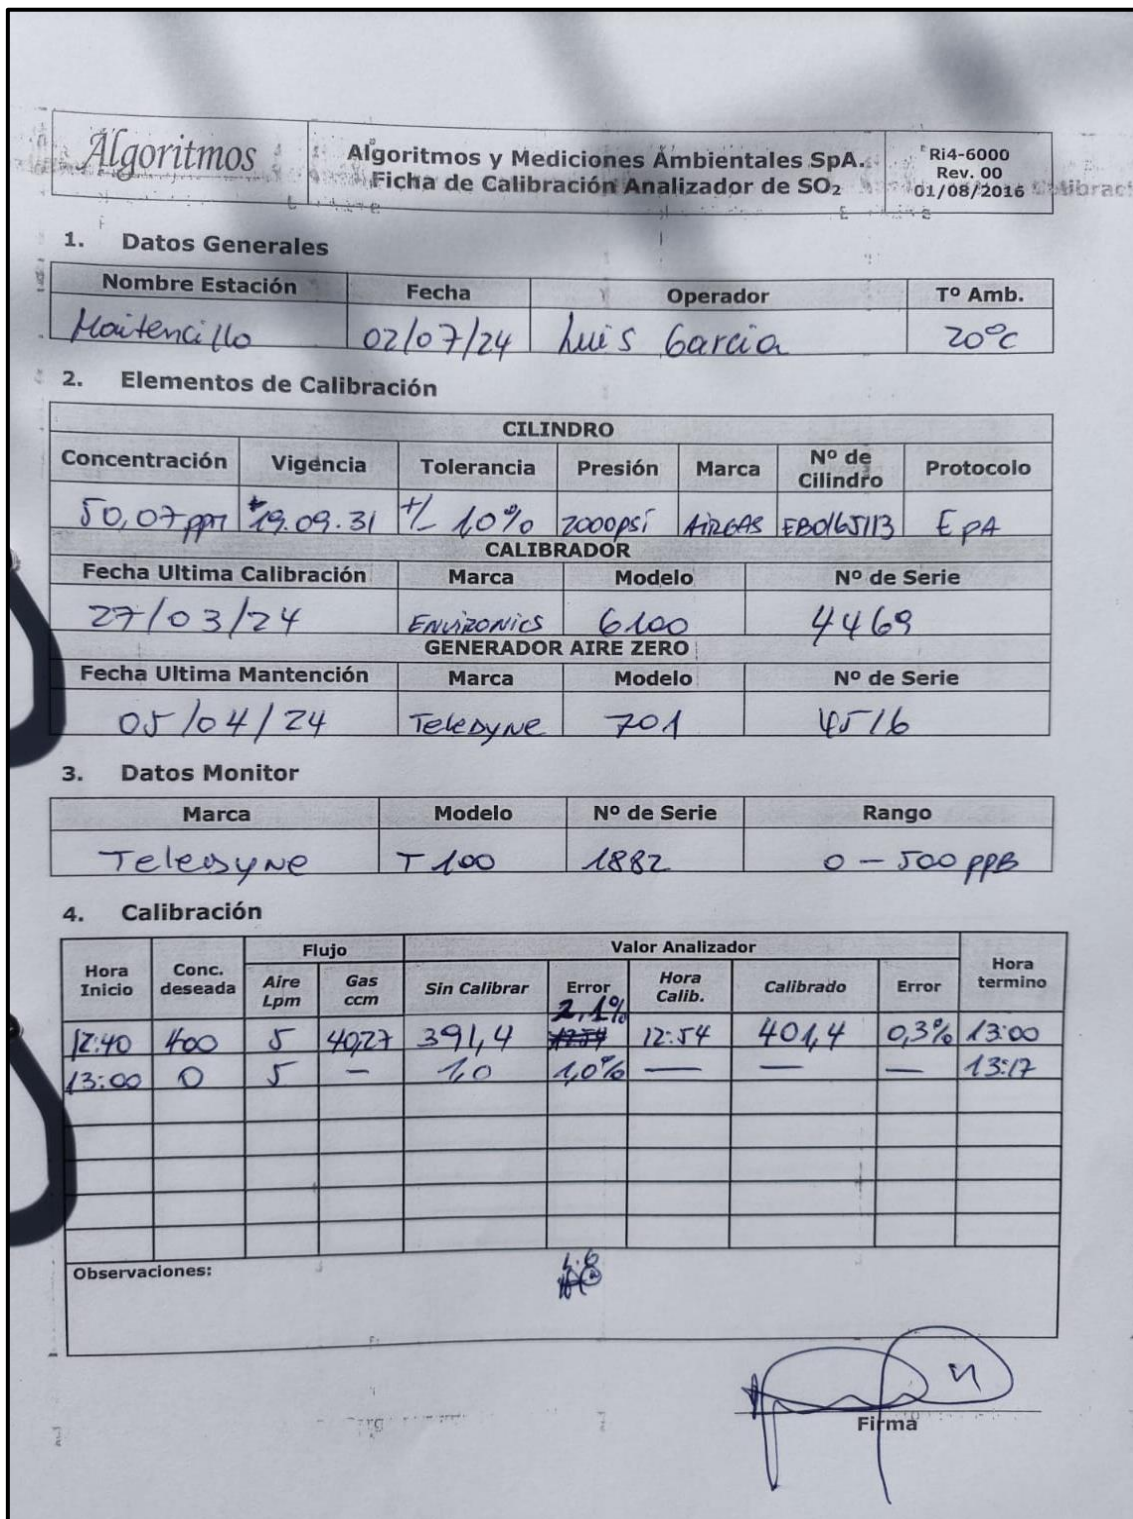 Algoritmos
Algoritmos y Mediciones Ambientales SpA.
Ficha de Calibración Analizador de SO₂
Ri4-6000
Rev. 00
01/08/2016
1. Datos Generales
Nombre Estación Fecha Operador Tº Amb.
Maitencillo 02/07/24 Luis Garcia 20°C
2. Elementos de Calibración
CILINDRO
Concentración Vigencia Tolerancia Presión Marca Nº de Cilindro Protocolo
50,07 ppm 19.09.31 +/- 10% 2000psi AIRGAS EB0165113 EPA
CALIBRADOR
Fecha Ultima Calibración Marca Modelo Nº de Serie
27/03/24 ENVIRONICS 6100 4469
GENERADOR AIRE ZERO
Fecha Ultima Mantención Marca Modelo Nº de Serie
05/04/24 Teledyne 701 4516
3. Datos Monitor
Marca Modelo Nº de Serie Rango
Teledyne T100 1882 0 - 500 PPB
4. Calibración
Flujo Valor Analizador
Hora Inicio Conc. deseada Aire Lpm Gas ccm Sin Calibrar Error Hora Calib. Calibrado Error Hora termino
12:40 400 5 40,27 391,4 2,1% 12:54 401,4 0,3% 13:00
13:00 0 5 — 1,0 1,0% — — — 13:17
Observaciones:
Firma